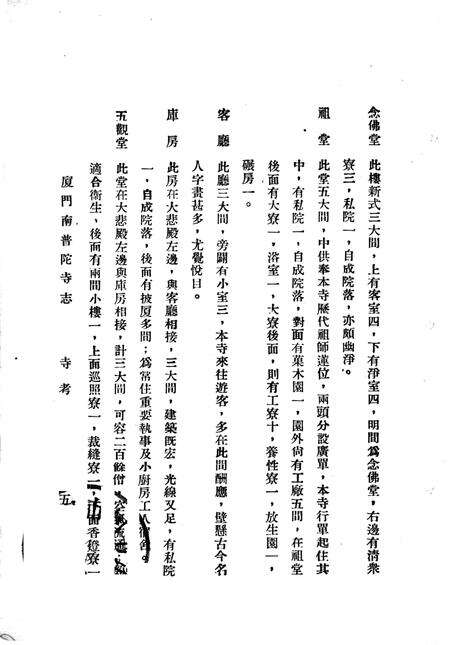 念佛堂　此樓新式三大間，上有客室四，下有淨室四，明間為念佛堂，右邊有清衆
寮三，私院一，自成院落，亦頗幽淨。
祖　堂　此堂五大間，中供奉本寺歷代祖師蓮位，兩頭分設廣單，本寺行單起住其
中，有私院一，自成院落，對面有菓木園一，園外尙有工廠五間，在祖堂
後面有大寮一，浴室一，大寮後面，則有工寮十，養性寮一，放生園一，
碾房一。
客　廳　此廳三大間，旁闢有小室三，本寺來往遊客，多在此間酬應，壁懸古今名
人字畫甚多，尤覺悅目。
庫　房　此房在大悲殿左邊，與客廳相接，三大間，建築旣宏，光線又足，有私院
一，自成院落，後面有披厦多間；為常住重要執事及小厨房工人宿舍。
五觀堂　此堂在大悲殿左邊與庫房相接，計三大間，可容二百餘僧，空氣流通，
適合衛生，後面有兩間小樓一，上面巡照寮一，裁縫寮二，面香燈寮一
厦門南普陀寺志　寺考　五